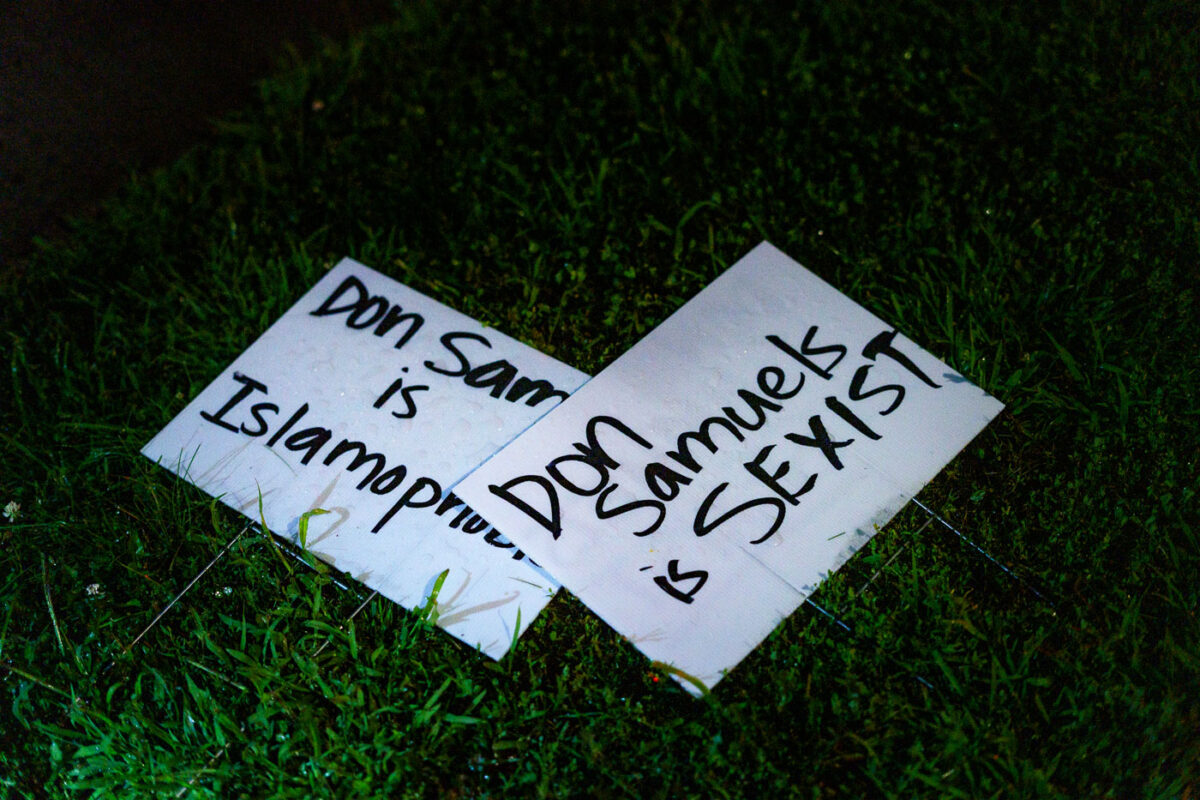 Don Sam
is
Islamophob
Don
Samuels
is SEXIST